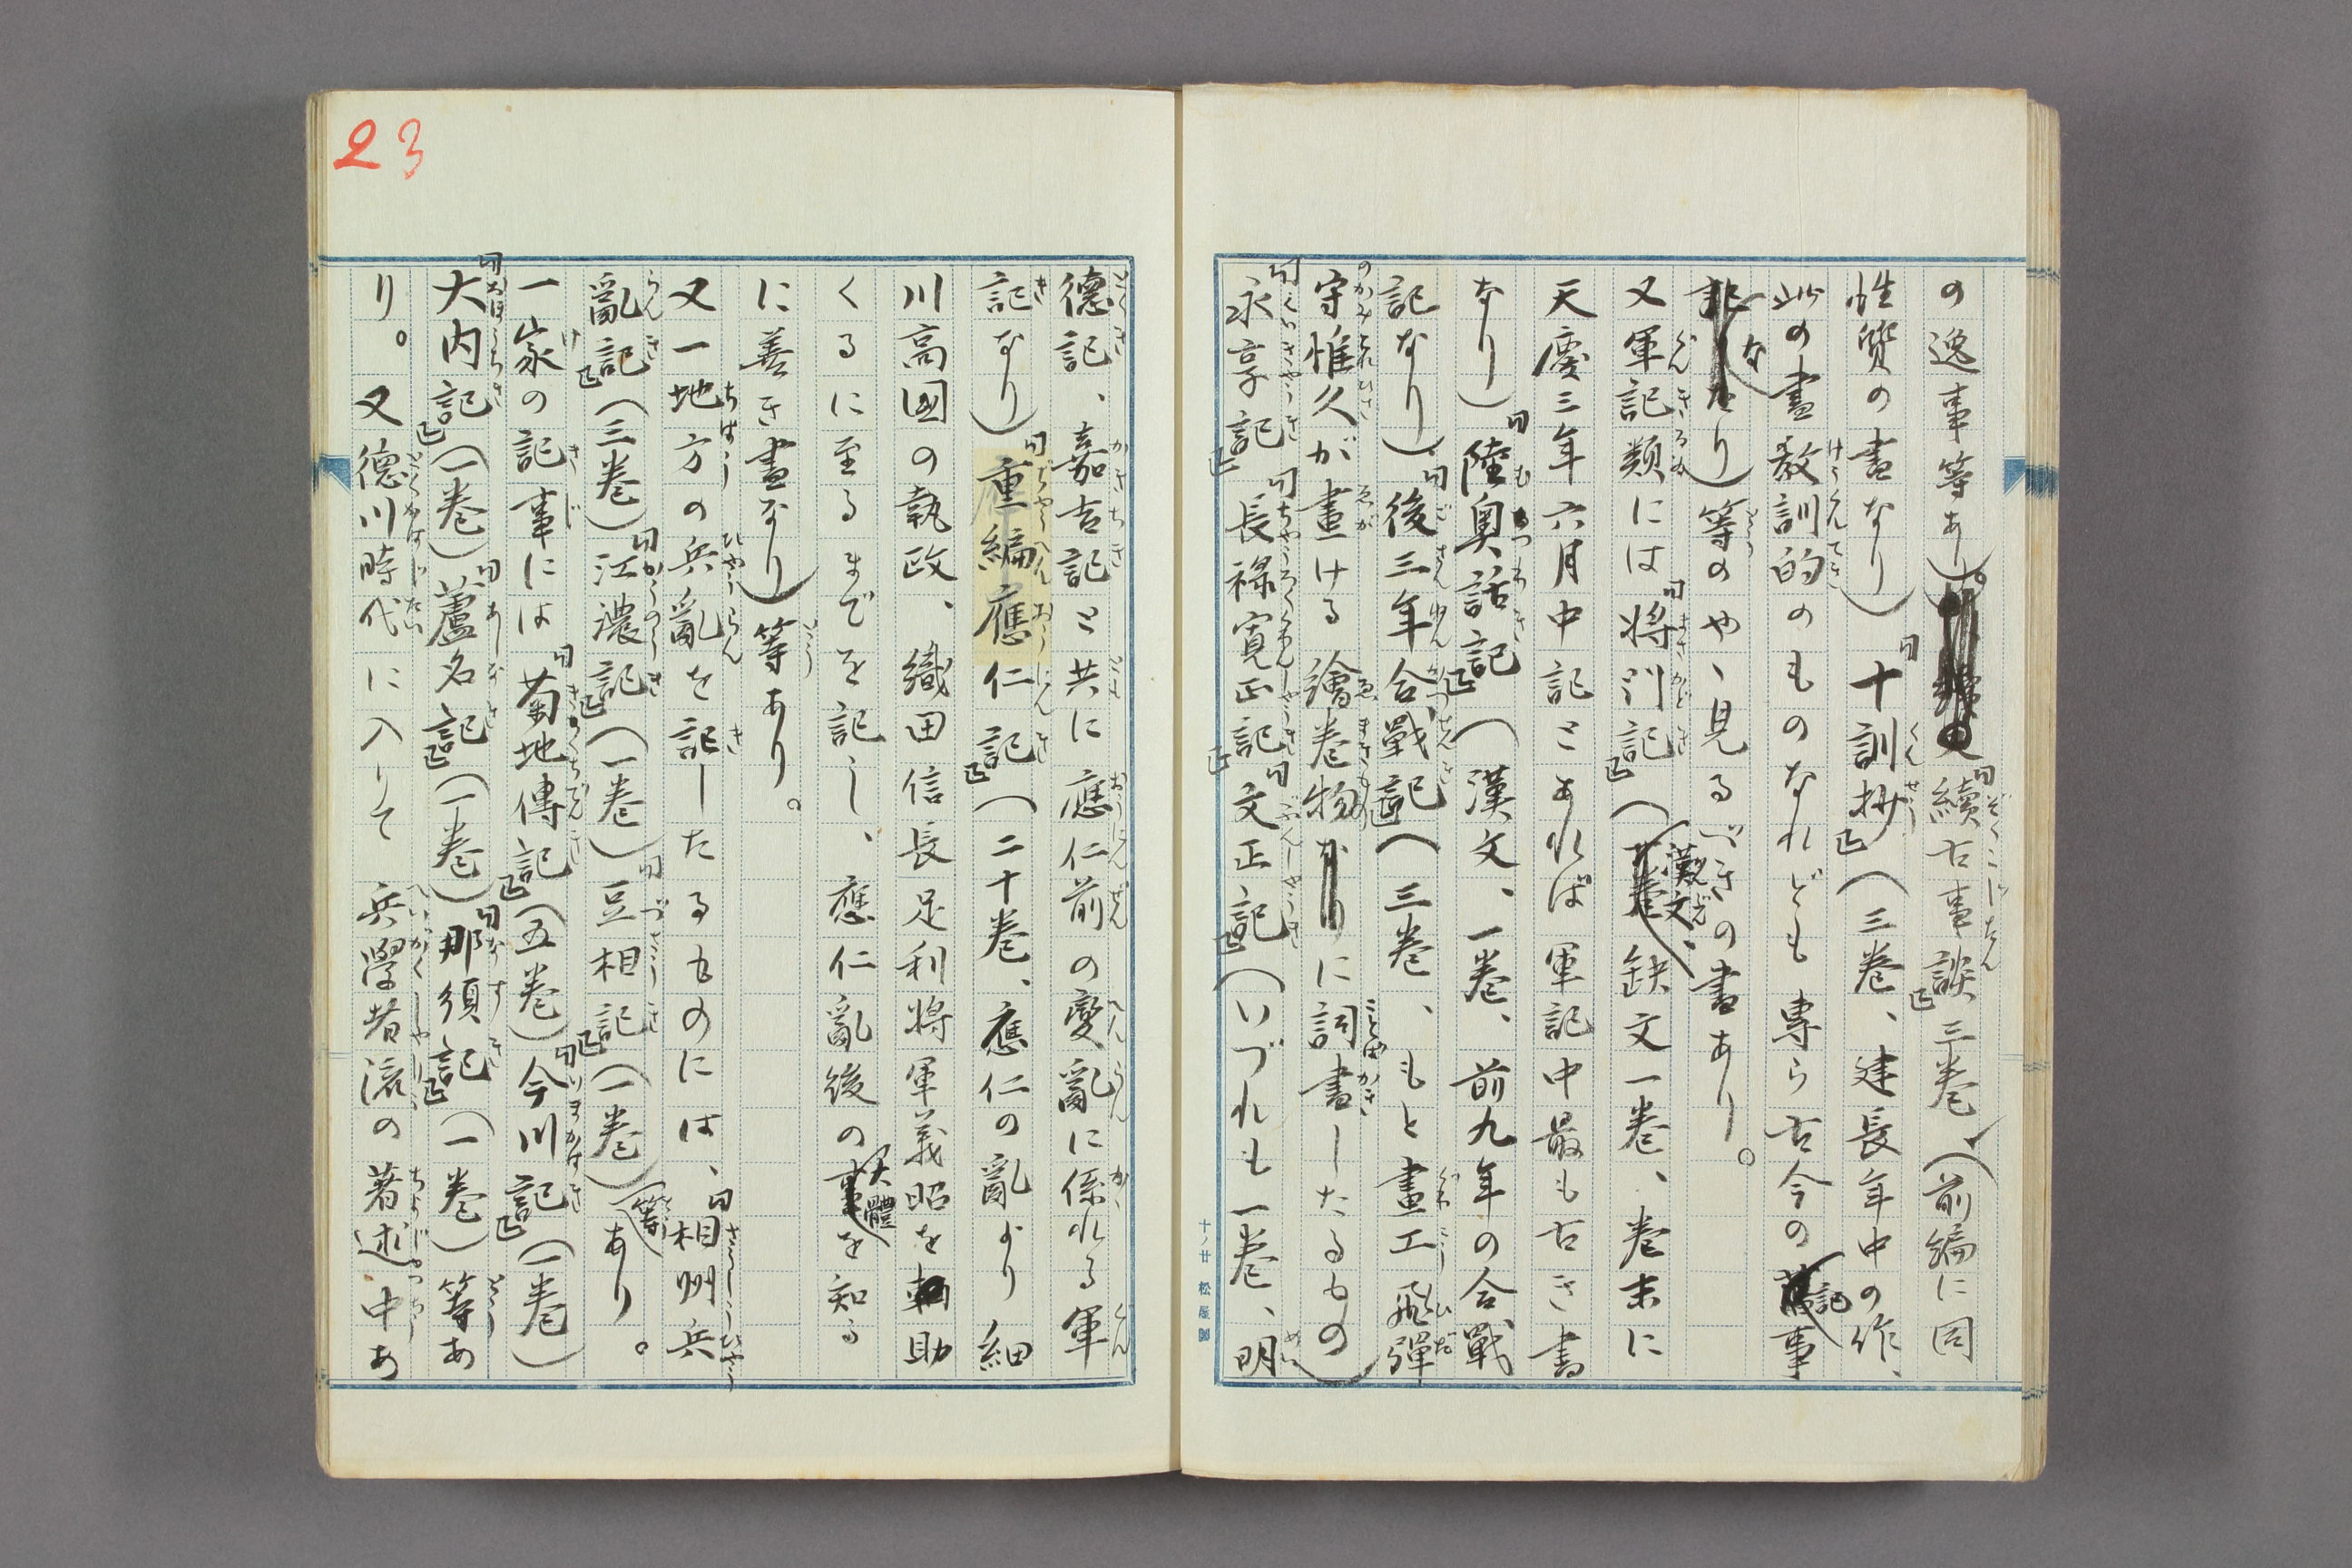 の逸事等あり)。「續古事談」三巻、(前編に同
性質の書なり)「十訓抄」(三巻、建長年中の作、
此の書教訓的のものなれども専ら古今の記事
なり)等のやゝ見るべきの書あり。
又軍記類には「将門記」(漢文、缺文一巻、巻末に
天慶三年六月中記とあれば軍記中最も古き書
なり)「陸奥話記」(漢文、一巻、前九年の合戰
記なり)「後三年合戰記」(三巻、もと畫工飛彈
守惟久が畫ける繪巻物に詞書したるもの)
「永享記」「長禄寛正記」「文正記」(いづれも一巻、明
德記、嘉吉記と共に應仁前の變亂に係れる軍
記なり)「重編應仁記」(二十巻、應仁の亂より細
川高国の執政、織田信長足利将軍義昭を輔助
くるに至るまでを記し、應仁亂後の大體を知る
に善き書なり)等あり。
又一地方の兵亂を記したるものには、「相州兵
亂記」(三巻)「江濃記」(一巻)「豆相記」(一巻)等あり。
一家の記事には「菊地傳記」(五巻)「今川記」(一巻)
「大内記」(一巻)「蘆名記」(一巻)「那須記」(一巻)等あ
り。又德川時代に入りて兵學者流の著述中あ
十ノ廿 松屋製
23